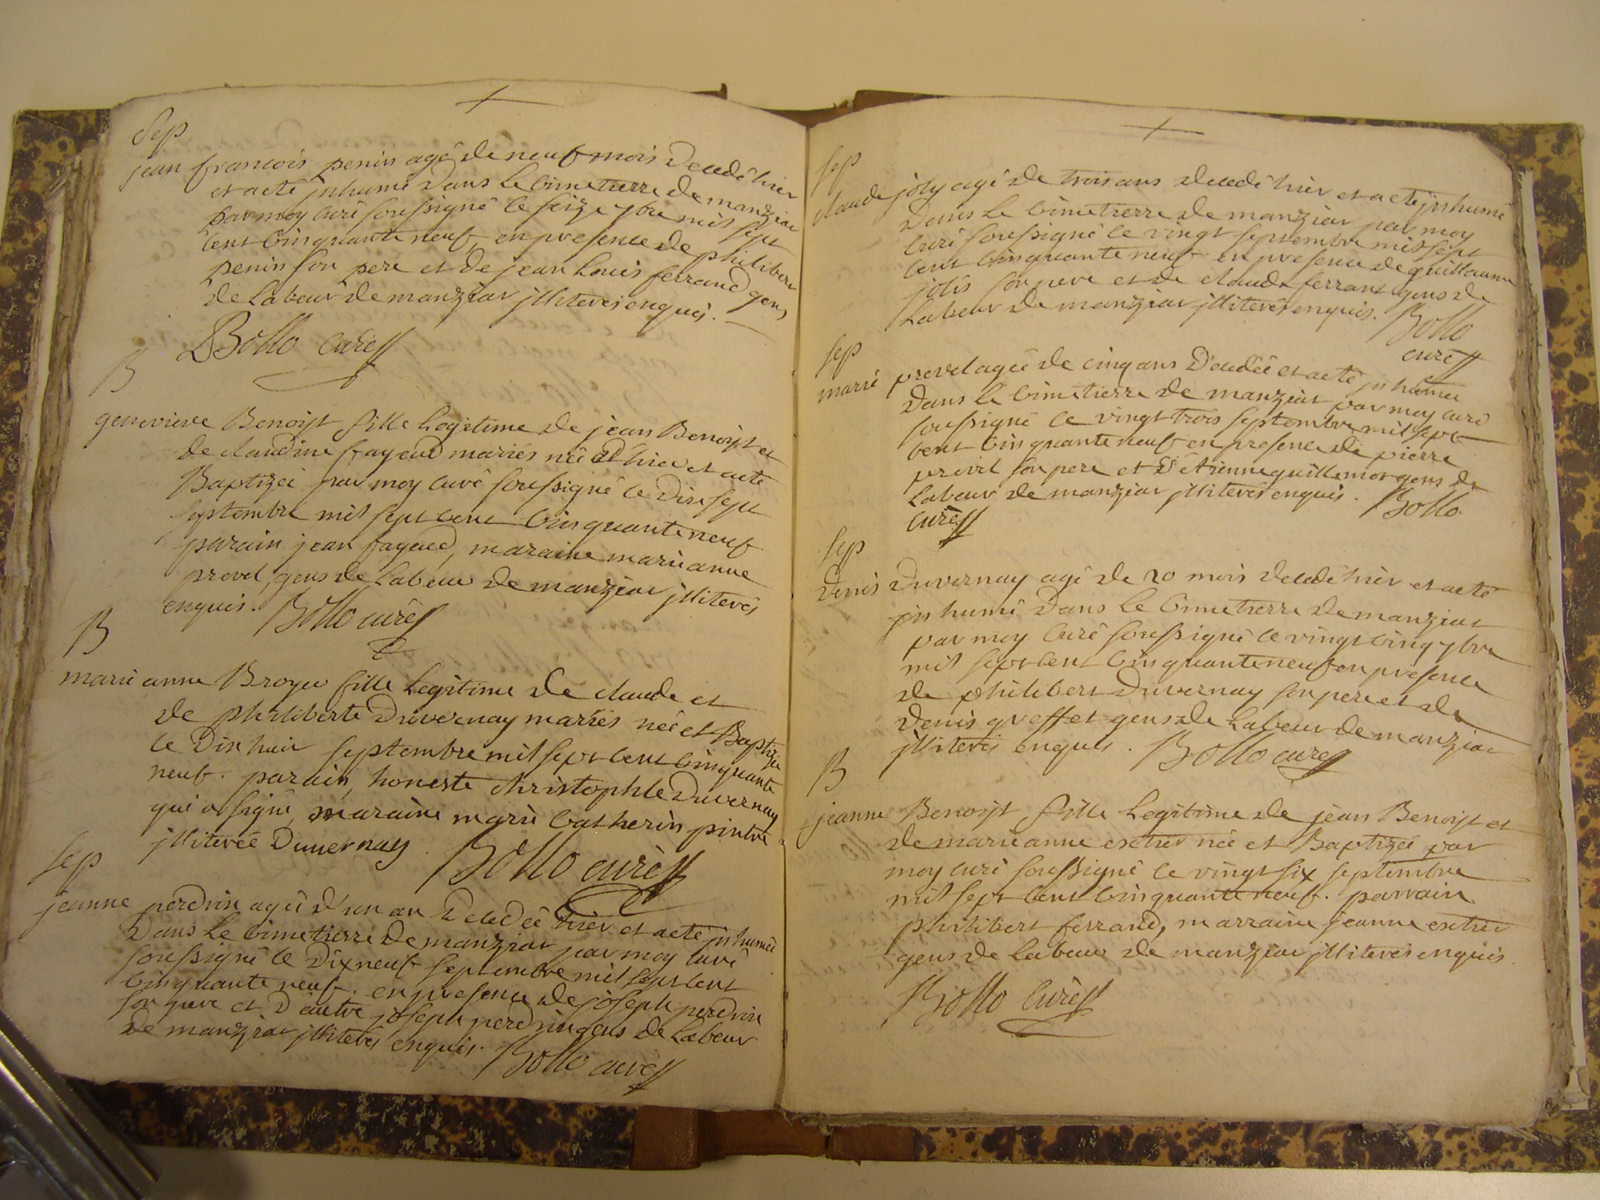 Sep
jean francois penin agé de neuf mois decedé hier
et a eté jnhumé dans le Cimetierre de manziat
par moy curé soussigné le seize 7bre mil sept
cent Cinquante neuf, en presence de philibert
penin son pere et de jean Louis ferrand gens
de Labeur de manziat jlliterés enquis.
Bollo curé
B
genevieve Benoist fille Legitime de jean Benoist et
de claudine frayeud mariés née d'hier et a eté
Baptizée par moy curé soussigné le Dixsept
septembre mil sept cent Cinquante neuf
parain jean fayeud, maraine marie anne
prevel, gens de Labeur de manziat jlliterés
enquis. Bollo curé
B
marie anne Broyer fille Legitime de claude et
de philiberte Duvernay mariés née et Baptizée
le Dixhuit septembre mil sept cent Cinquante
neuf. parain, honeste christophle Duvernay
qui a signé, maraine marie Catherin pintre
jlliterée Duvernay. Bollo curé
Sep
jeanne perdrix agée d'un an decedée hier et a eté jnhumée
Dans le Cimetierre de manziat par moy curé
soussigné le Dixneuf septembre mil sept cent
Cinquante neuf. en presence de joseph perdrix
son pere et D'autre joseph perdrix gens de Labeur
de manziat jlliterés enquis. Bollo curé
Sep
claude joly agé de trois ans decedé hier et a eté jnhumé
Dans le Cimetierre de manziat par moy
Curé soussigné le vingt septembre mil sept
cent Cinquante neuf en presence de guillaume
jolis son pere et de claude ferrand gens de
Labeur de manziat jlliterés enquis. Bollo
curé
Sep
marie prevel agée de cinq ans Decedée et a eté jnhumée
Dans le Cimetierre de manziat par moy curé
soussigné le vingt trois septembre mil sept
cent Cinquante neuf en presence de pierre
prevel son pere et D'étienne guillemot gens de
Labeur de manziat jlliterés enquis. Bollo
Curé
Sep
Denis Duvernay agé de 20 mois decedé hier et a eté
jnhumé Dans le Cimetierre de manziat
par moy Curé soussigné le vingt cinq 7bre
mil sept cent Cinquante neuf en presence
de philibert Duvernay son pere et de
Denis greffet gens de Labeur de manziat
jlliterés enquis. Bollo curé
B
jeanne Benoist fille Legitime de jean Benoist et
de marie anne extier née et Baptizée par
moy curé soussigné le vingt six septembre
mil sept cent Cinquante neuf. parrain
philibert ferrand, marraine jeanne extier
gens de Labeur de manziat jlliterés enquis.
Bollo Curé